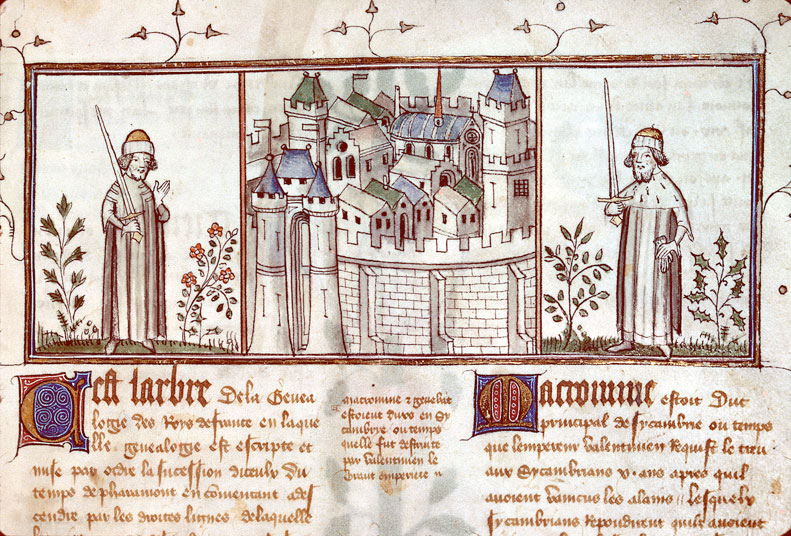 Cest larbre De la Genea
logie des Roys de france en laque
lle genealogie est escripte et
mise par ordre la sucession diceulx du
temps de pharamont en comencant a des
cendre par les droites lignes de laquelle
marromme & genebat
estoient ducx en Sy
cambrie ou temps
quelle fut destruite
par valentinien le
Grant emperere
Marromme estoit Duc
principal de sycambrie ou temps
que lempereur valentinien Requist le treu
aux Sycambrians x ans apres quil
avoient vaincus les alains lesquelx
sycambrians repondirent quilz avoient